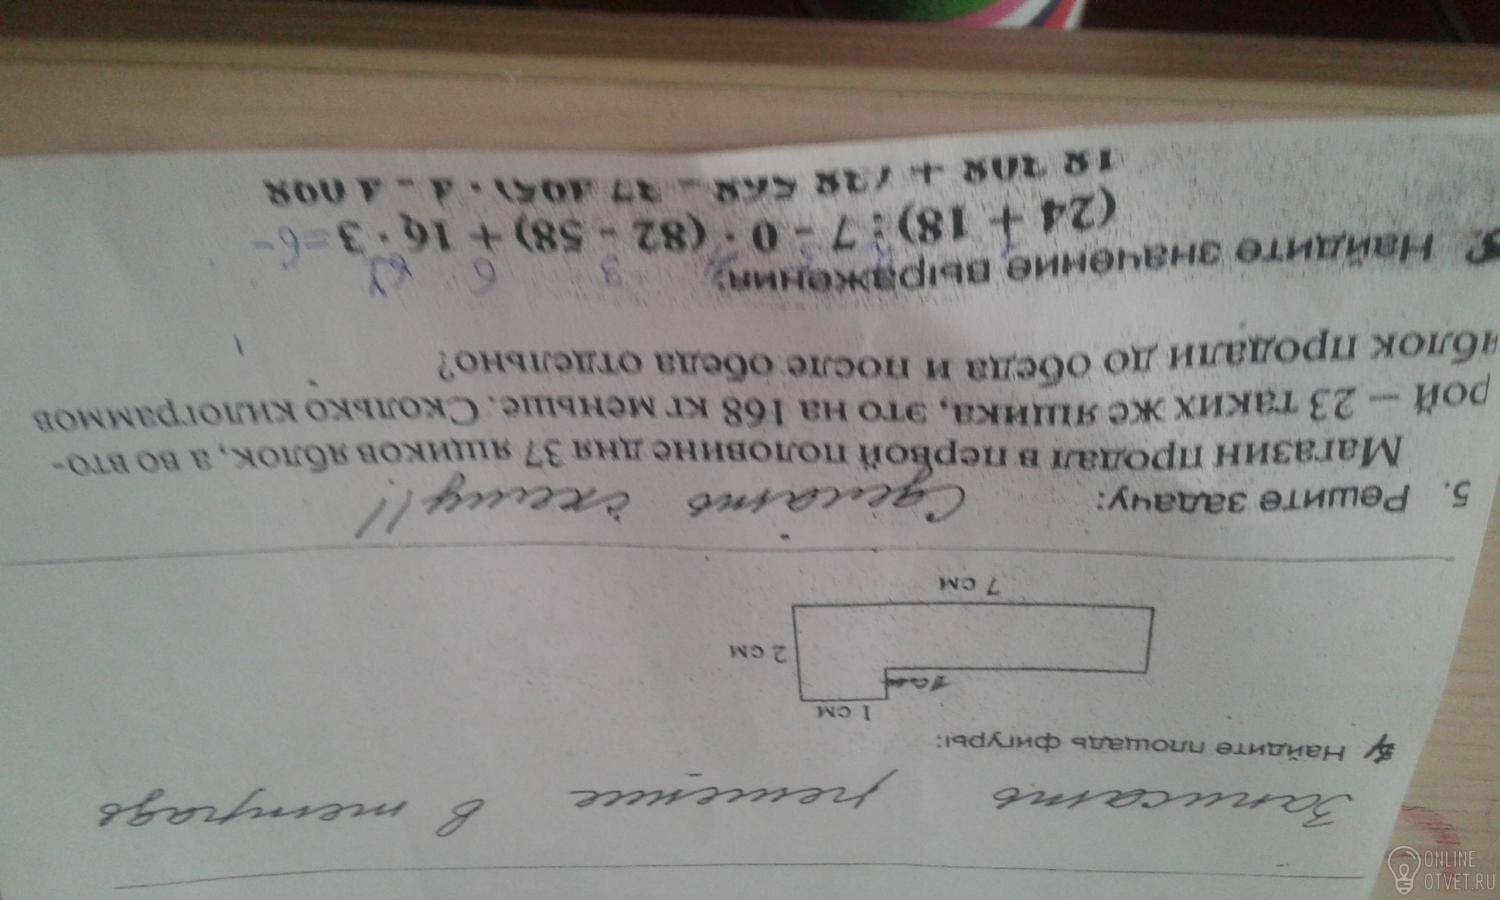 Записать решение в тетрадь
Найдите площадь фигуры:
1 см
1 см
2 см
7 см
5. Решите задачу: Сделать схему!!
Магазин продал в первой половине дня 37 ящиков яблок, а во вто-
рой – 23 таких же ящика, это на 168 кг меньше. Сколько килограммов
яблок продали до обеда и после обеда отдельно?
Найдите значение выражений:
(24 + 18) : 7 - 0 · (82 - 58) + 16 · 3 =6-
ONLINE
OTVET.RU